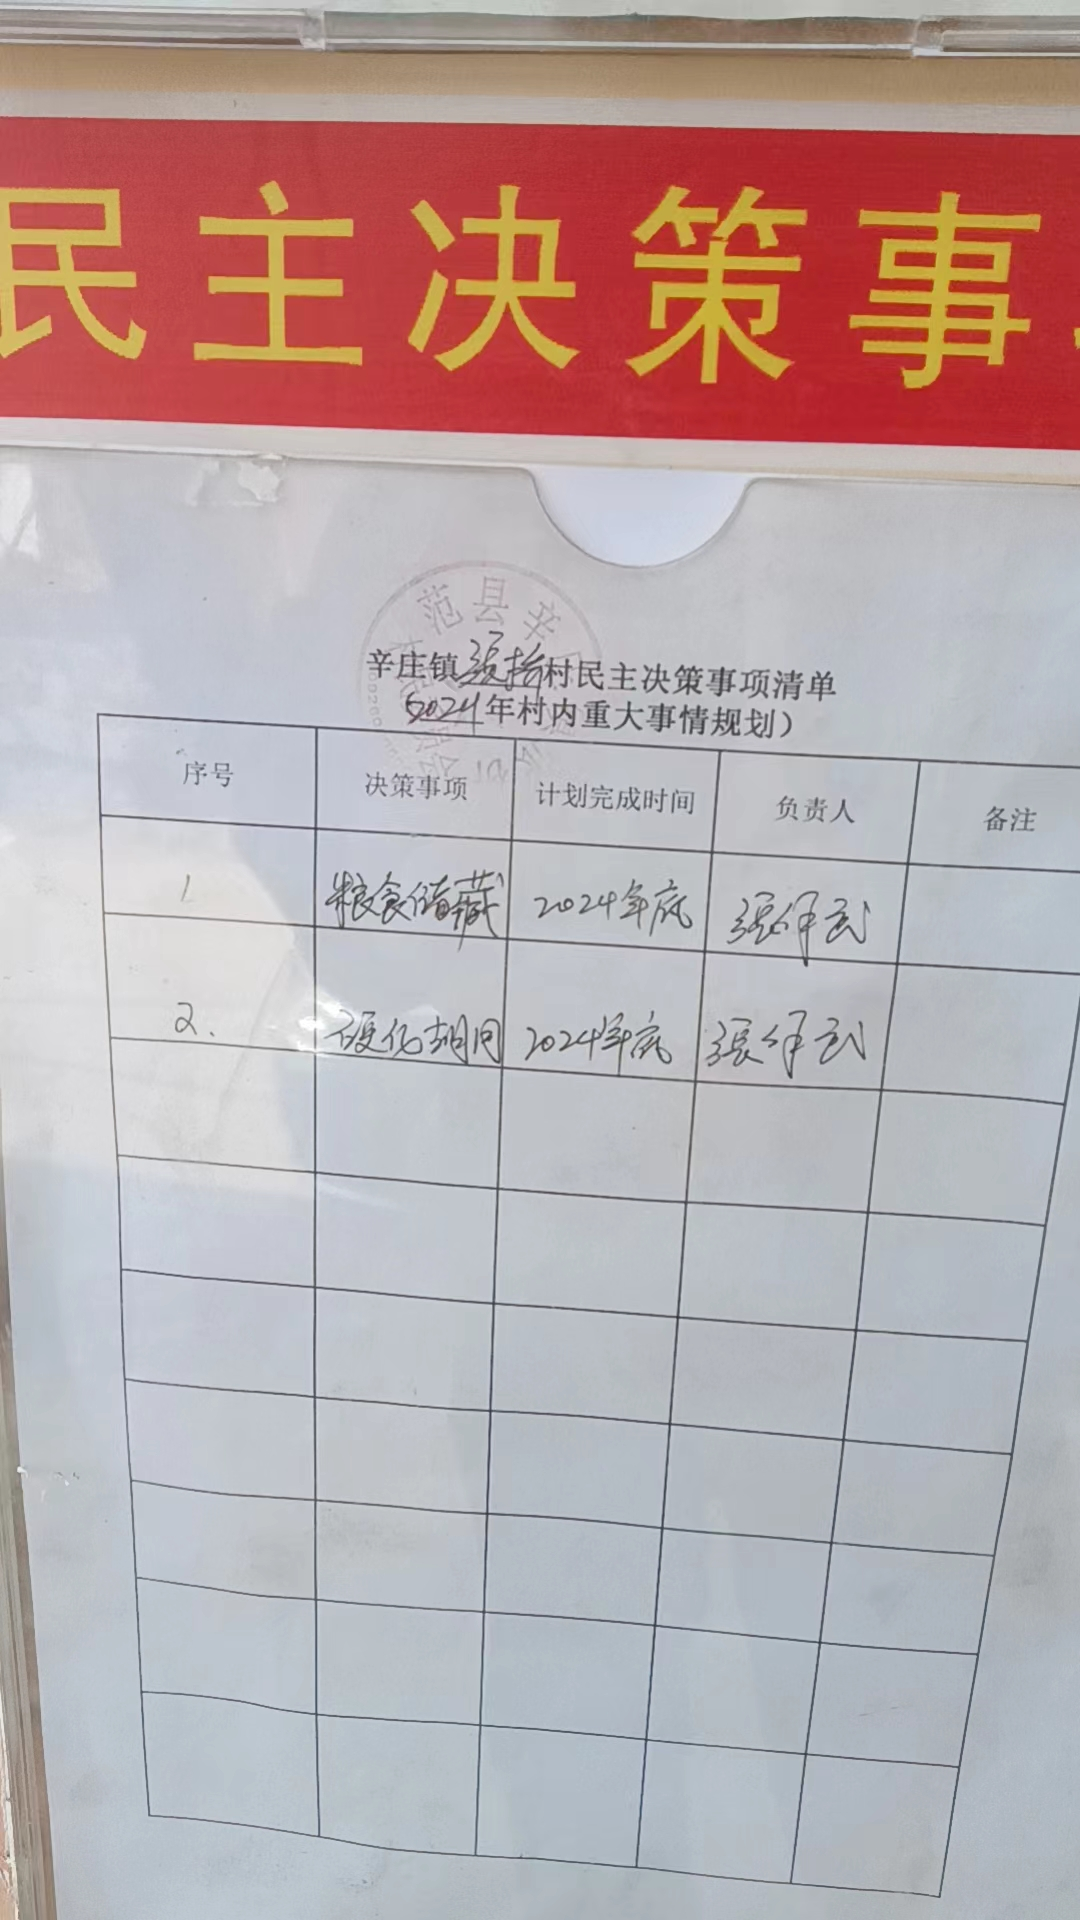 民主决策事
范县辛
辛庄镇张抬村民主决策事项清单
(2024年村内重大事情规划)
序号 决策事项 计划完成时间 负责人 备注
1 粮食储藏 2024年底 张保武
2. 硬化胡同 2024年底 张保武